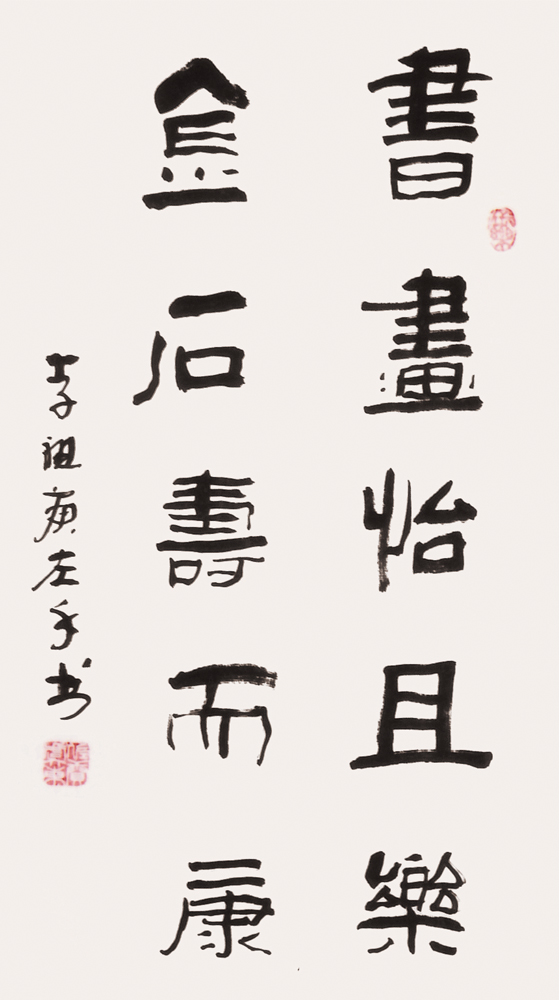 書畫怡且樂
金石壽而康
李祖庚左手书